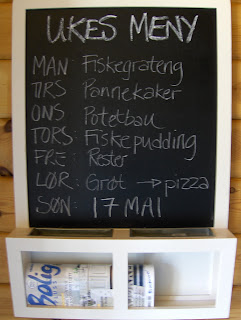 UKES MENY
MAN Fiskegrateng
TIRS Pannekaker
ONS Potetbau
TORS: Fiskepudding
FRE: Rester
LØR: Grøt → pizza
SØN: 17 MAI
Bolig